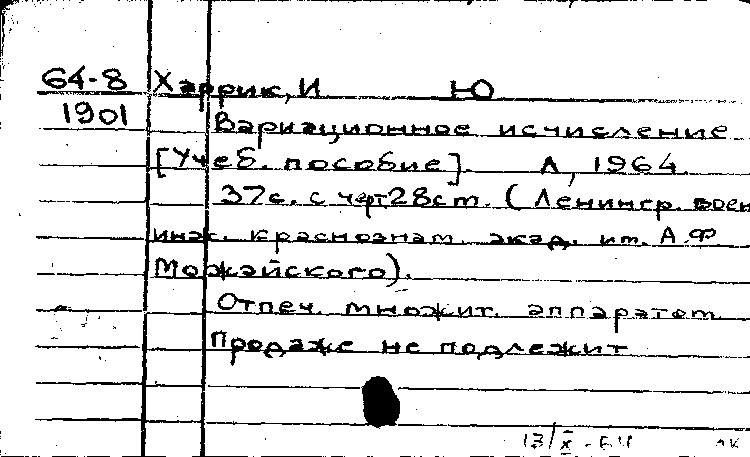 64-8 Харрик, И Ю
1901
Вариационное исчисление
[Учеб. пособие]. Л, 1964.
37с. с черт 28 см. (Ленингр. воен
инж. краснознам. акад. им. А.Ф
Можайского).
Отпеч. множит. аппаратом
Продаже не подлежит
13/X - 64